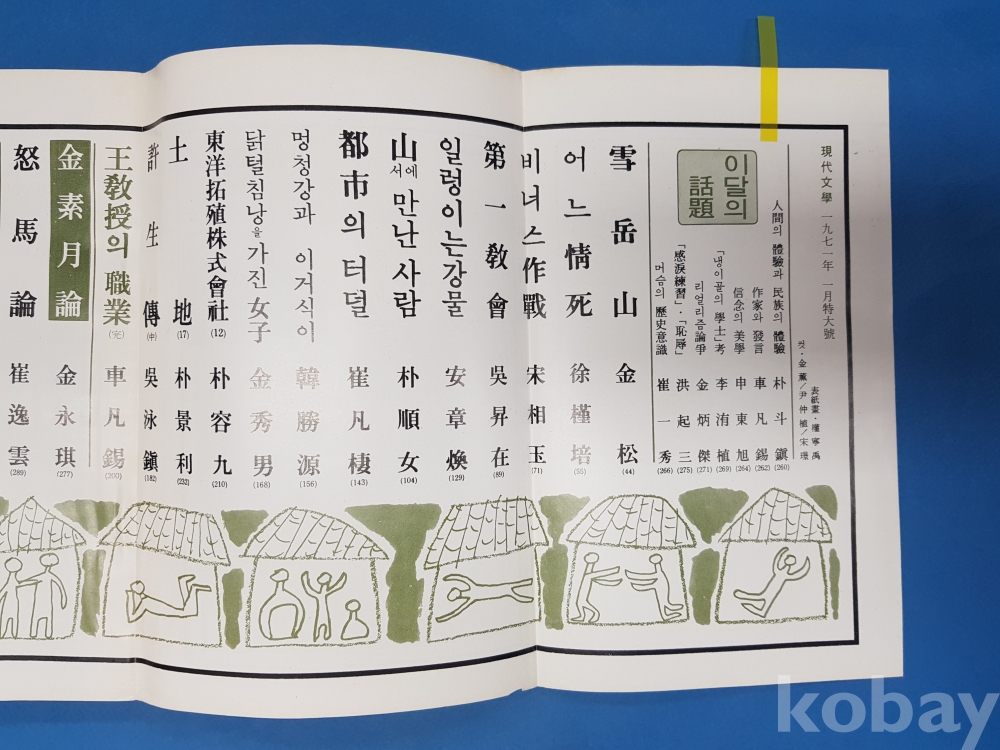 現代文學 一九七一年 一月特大號
表紙畫·權寧禹
컷·金薰/尹仲植/宋璟
이달의 話題
人間의 體驗과 民族의 體驗 朴斗鎭 (260)
作家와 發言 車凡錫 (262)
信念의 美學 申東旭 (264)
「냉이꼴의 學士」考 李洧植 (269)
리얼리즘論爭 金炳傑 (271)
「感淚練習」·「恥辱」 洪起三 (275)
머슴의 歷史意識 崔一秀 (266)
雪岳山 金松 (44)
어느 情死 徐槿培 (55)
비너스作戰 宋相玉 (71)
第一敎會 吳昇在 (89)
일렁이는강물 安章煥 (129)
山에서 만난사람 朴順女 (104)
都市의 터덜 崔凡棲 (143)
멍청강과 이거식이 韓勝源 (156)
닭털침낭을 가진 女子 金秀男 (168)
東洋拓殖株式會社 (12) 朴容九 (210)
土地 (17) 朴景利 (232)
許生傳 (中) 吳泳鎭 (182)
王敎授의 職業 (完) 車凡錫 (200)
金素月論 金永琪 (277)
怒馬論 崔逸雲 (289)
kobay